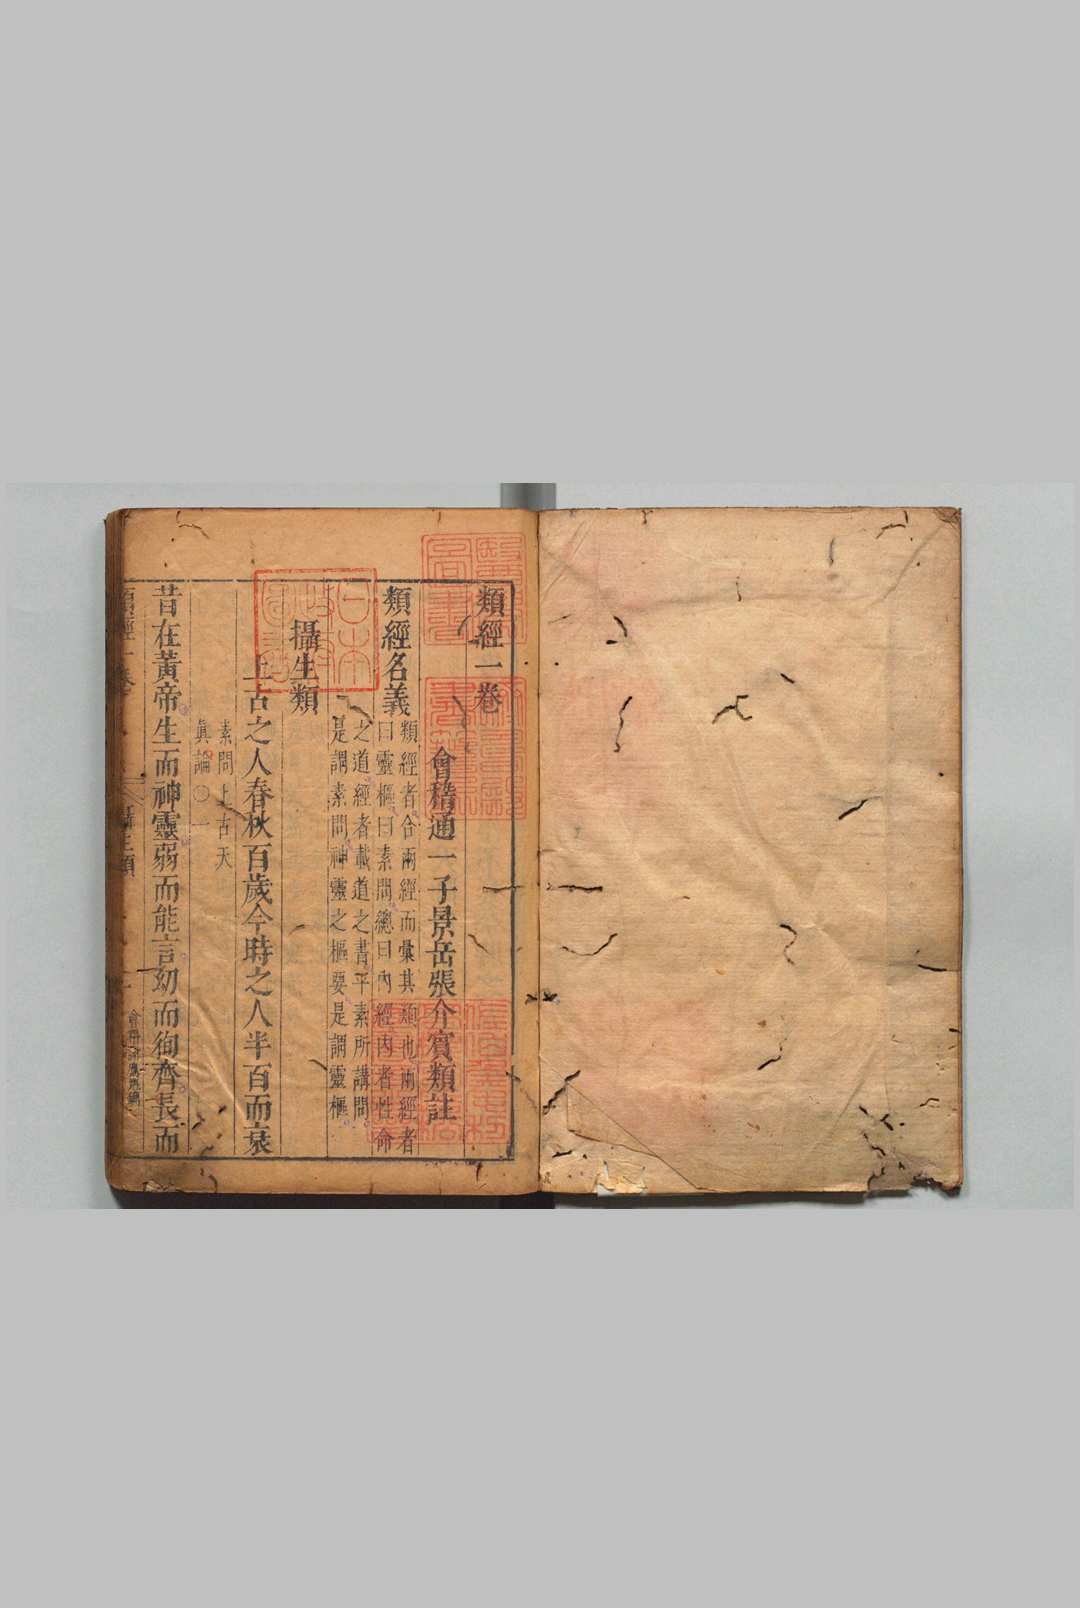 類經一卷
會稽通一子景岳張介賓類註
類經名義
類經者合兩經而彙其類也兩經者
曰靈樞曰素問總曰內經內者性命
之道經者載道之書平素所講問
是謂素問神靈之樞要是謂靈樞
攝生類
上古之人春秋百歲今時之人半百而衰
素問上古天
眞論〇一
昔在黃帝生而神靈弱而能言幼而徇齊長而
類經一卷
攝生類